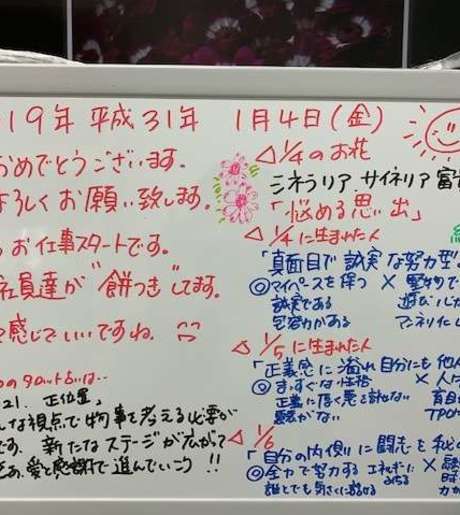 19年 平成31年 1月4日(金)
おめでとうございます。
よろしくお願い致します。
お仕事スタートです。
社員達が"餅つき"してます。
感じでいいですね。
のタロット占いは…
21. 正位置」
な視点で物事を考える必要が
です。新たなステージが広がって
愛と感謝で進んでいこう!!
△1/4のお花
シネラリア、サイネリア
「悩める思い出」
△1/4に生まれた人
「真面目で誠実な努力型
◎マイペースを保つ ×
誠実である
包容力がある マンネリ化し
△1/5に生まれた人
「正義感に溢れ自分にも他人
◎まっすぐな性格 ×
正義に背く悪を許せない
TPO
△1/6
「自分の内側に闘志を秘め
◎全力で努力するエネルギーに ×
誰とでも気さくに話せる